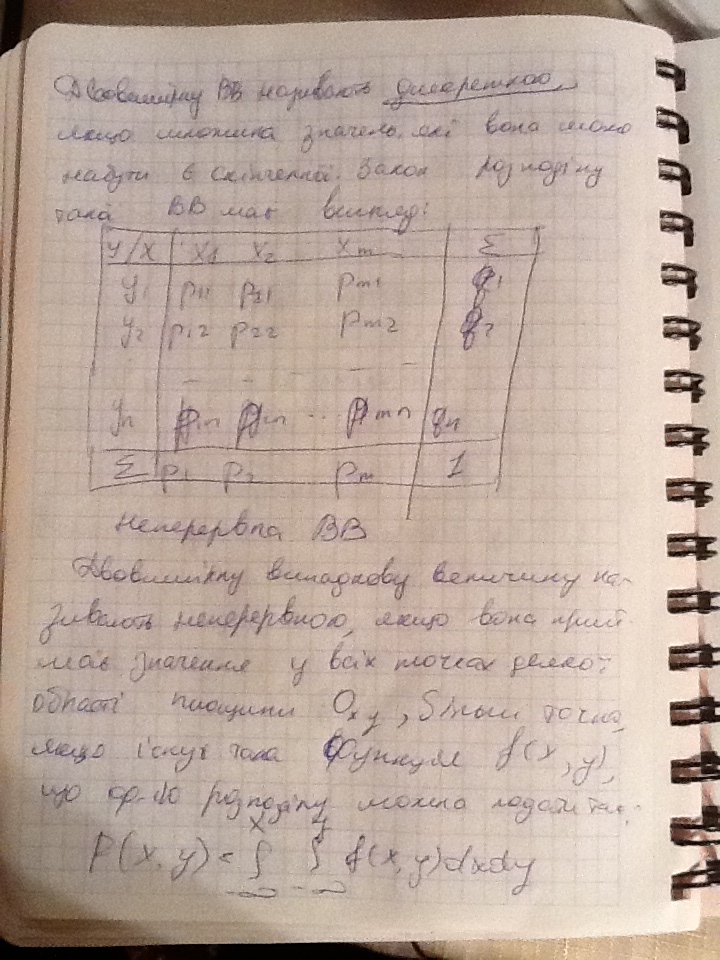 Двовимірну ВВ називають дискретною,
якщо множина значень, які вона може
набути є скінченна. Закон розподілу
така ВВ має вигляд:
y/x x1 x2 xm Σ
y1 p11 p21 pm1 q1
y2 p12 p22 pm2 q2
yn p1n p2n ... pmn qn
Σ p1 p2 pm 1
Неперервна ВВ
Двовимірну випадкову величину на-
зивають неперервною, якщо вона
має значення у всіх точках
області площини Oxy,
якщо існує така функція f(x,y),
що розподілу можна подати
F(x,y) = ∫ ∫ f(x,y)dxdy